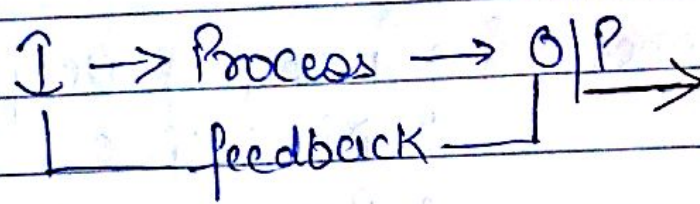 I → Process → O/P →
feedback